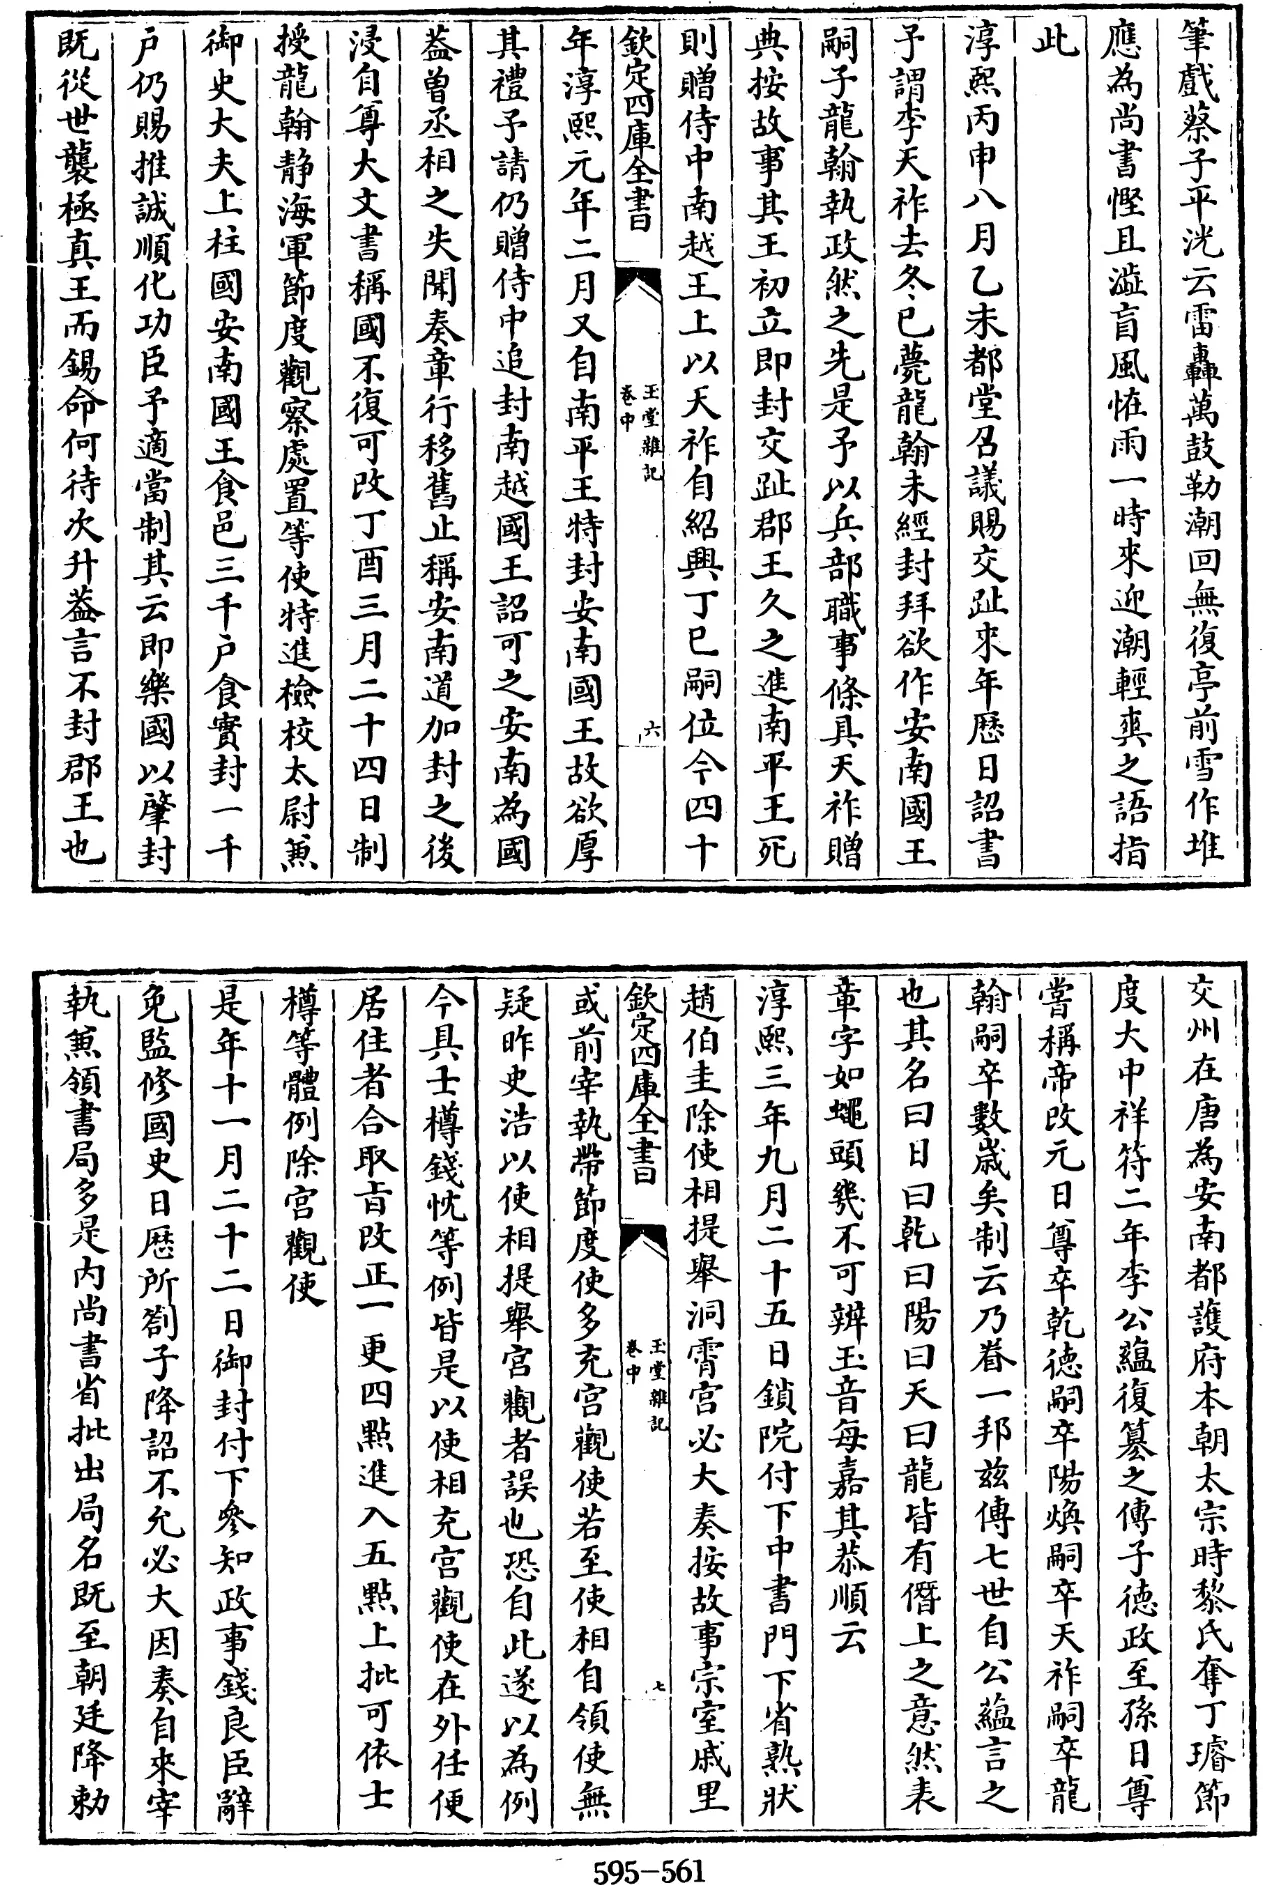 筆戲蔡子平洸云雷轟萬鼓勒潮回無復亭前雪作堆
應為尚書慳且澁盲風恠雨一時來迎潮輕爽之語指
此
淳熙丙申八月乙未都堂召議賜交趾來年歴日詔書
予謂李天祚去冬已薨龍翰未經封拜欲作安南國王
嗣子龍翰執政然之先是予以兵部職事條具天祚贈
典按故事其王初立即封交趾郡王久之進南平王死
則贈侍中南越王上以天祚自紹興丁巳嗣位今四十
欽定四庫全書
玉堂雜記
卷中
六
年淳熙元年二月又自南平王特封安南國王故欲厚
其禮予請仍贈侍中追封南越國王詔可之安南為國
葢曽丞相之失聞奏章行移舊止稱安南道加封之後
浸自尊大文書稱國不復可改丁酉三月二十四日制
授龍翰静海軍節度觀察處置等使特進檢校太尉兼
御史大夫上柱國安南國王食邑三千户食實封一千
户仍賜推誠順化功臣予適當制其云即樂國以肇封
既從世襲極真王而錫命何待次升葢言不封郡王也
交州在唐為安南都護府本朝太宗時黎氏奪丁璿節
度大中祥符二年李公蘊復簒之傳子德政至孫日尊
嘗稱帝改元日尊卒乾德嗣卒陽煥嗣卒天祚嗣卒龍
翰嗣卒數嵗矣制云乃眷一邦兹傳七世自公蘊言之
也其名曰日曰乾曰陽曰天曰龍皆有僭上之意然表
章字如蠅頭幾不可辨玉音每嘉其恭順云
淳熙三年九月二十五日鎖院付下中書門下省熟狀
趙伯圭除使相提舉洞霄宫必大奏按故事宗室戚里
欽定四庫全書
玉堂雜記
卷中
七
或前宰執帶節度使多充宫觀使若至使相自領使無
疑昨史浩以使相提舉宫觀者誤也恐自此遂以為例
今具士樽錢忱等例皆是以使相充宫觀使在外任便
居住者合取㫖改正一更四點進入五點上批可依士
樽等體例除宫觀使
是年十一月二十二日御封付下參知政事錢良臣辭
免監修國史日歴所劄子降詔不允必大因奏自來宰
執兼領書局多是内尚書省批出局名既至朝廷降勅
595-561